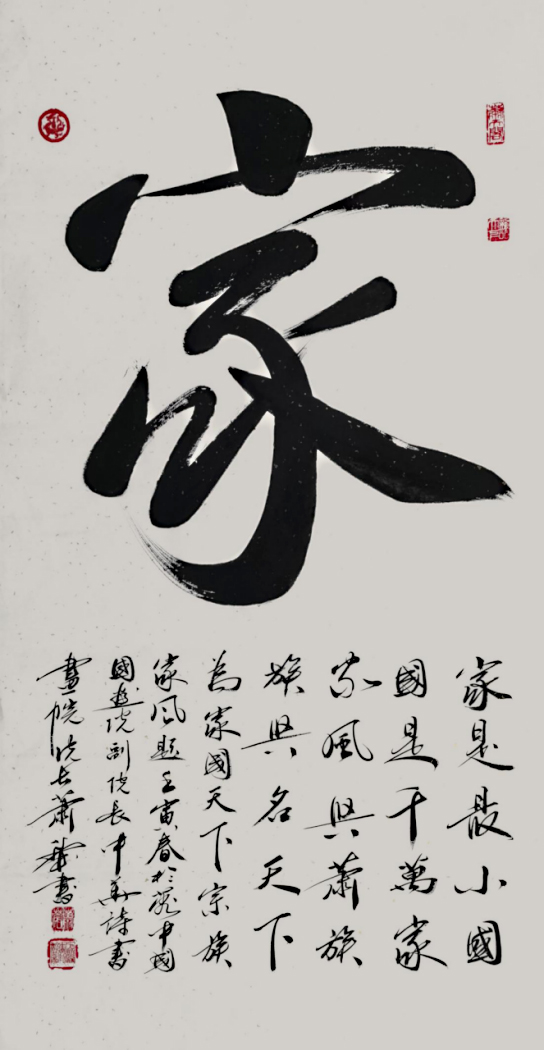 家
家是最小國
國是千萬家
家風興蕭族
族興名天下
為家國天下宗族
家風題壬寅春於中國
國藝院副院長中華詩書
畫院院長蕭書